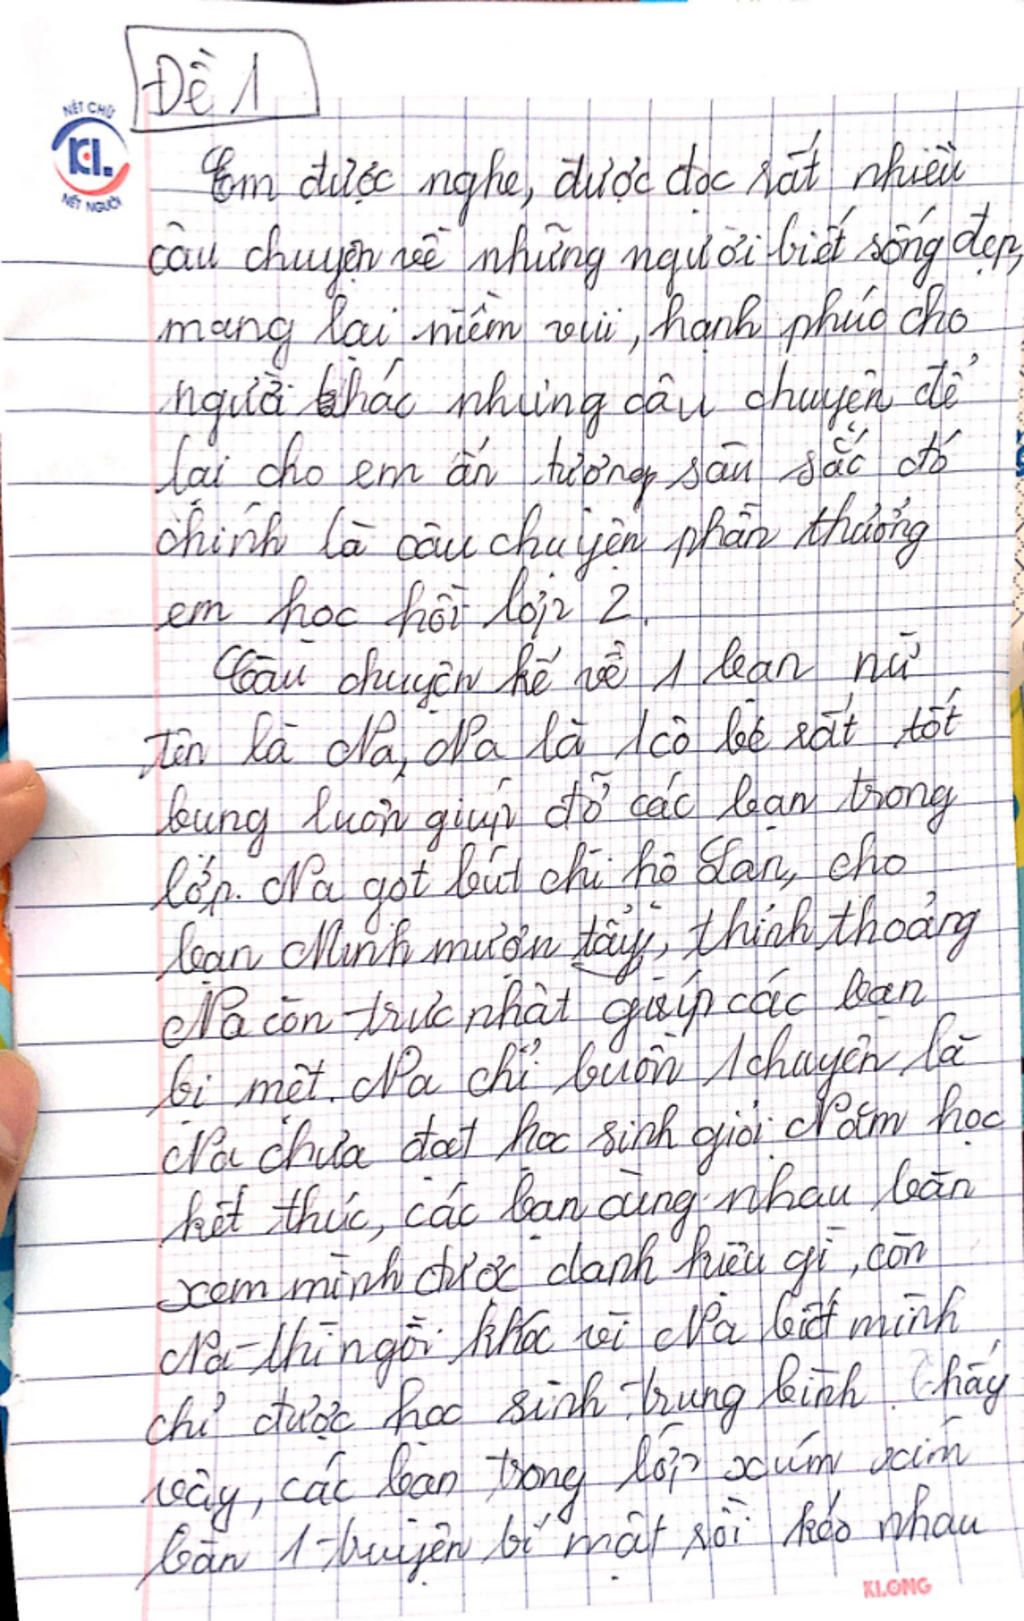 Đề 1
NÉT CHỮ
KL
NẾT NGƯỜI
Em được nghe, được đọc rất nhiều
câu chuyện về những người biết sống đẹp,
mang lại niềm vui, hạnh phúc cho
người khác những câu chuyện để
lại cho em ấn tượng sâu sắc đó
chính là câu chuyện phần thưởng
em học hồi lớp 2.
Câu chuyện kể về 1 bạn nữ
tên là Na, Na là 1 cô bé rất tốt
bụng luôn giúp đỡ các bạn trong
lớp. Na gọt bút chì hộ Lan, cho
bạn Minh mượn tẩy, thỉnh thoảng
Na còn trực nhật giúp các bạn
bị mệt. Na chỉ buồn 1 chuyện là
Na chưa đạt học sinh giỏi Năm học
kết thúc, các bạn cùng nhau bàn
xem mình được danh hiệu gì, còn
Na thì ngồi khóc vì Na biết mình
chỉ được học sinh trung bình. Thấy
vậy, các bạn trong lớp xúm xím
bàn 1 truyện bí mật rồi kéo nhau
KLONG